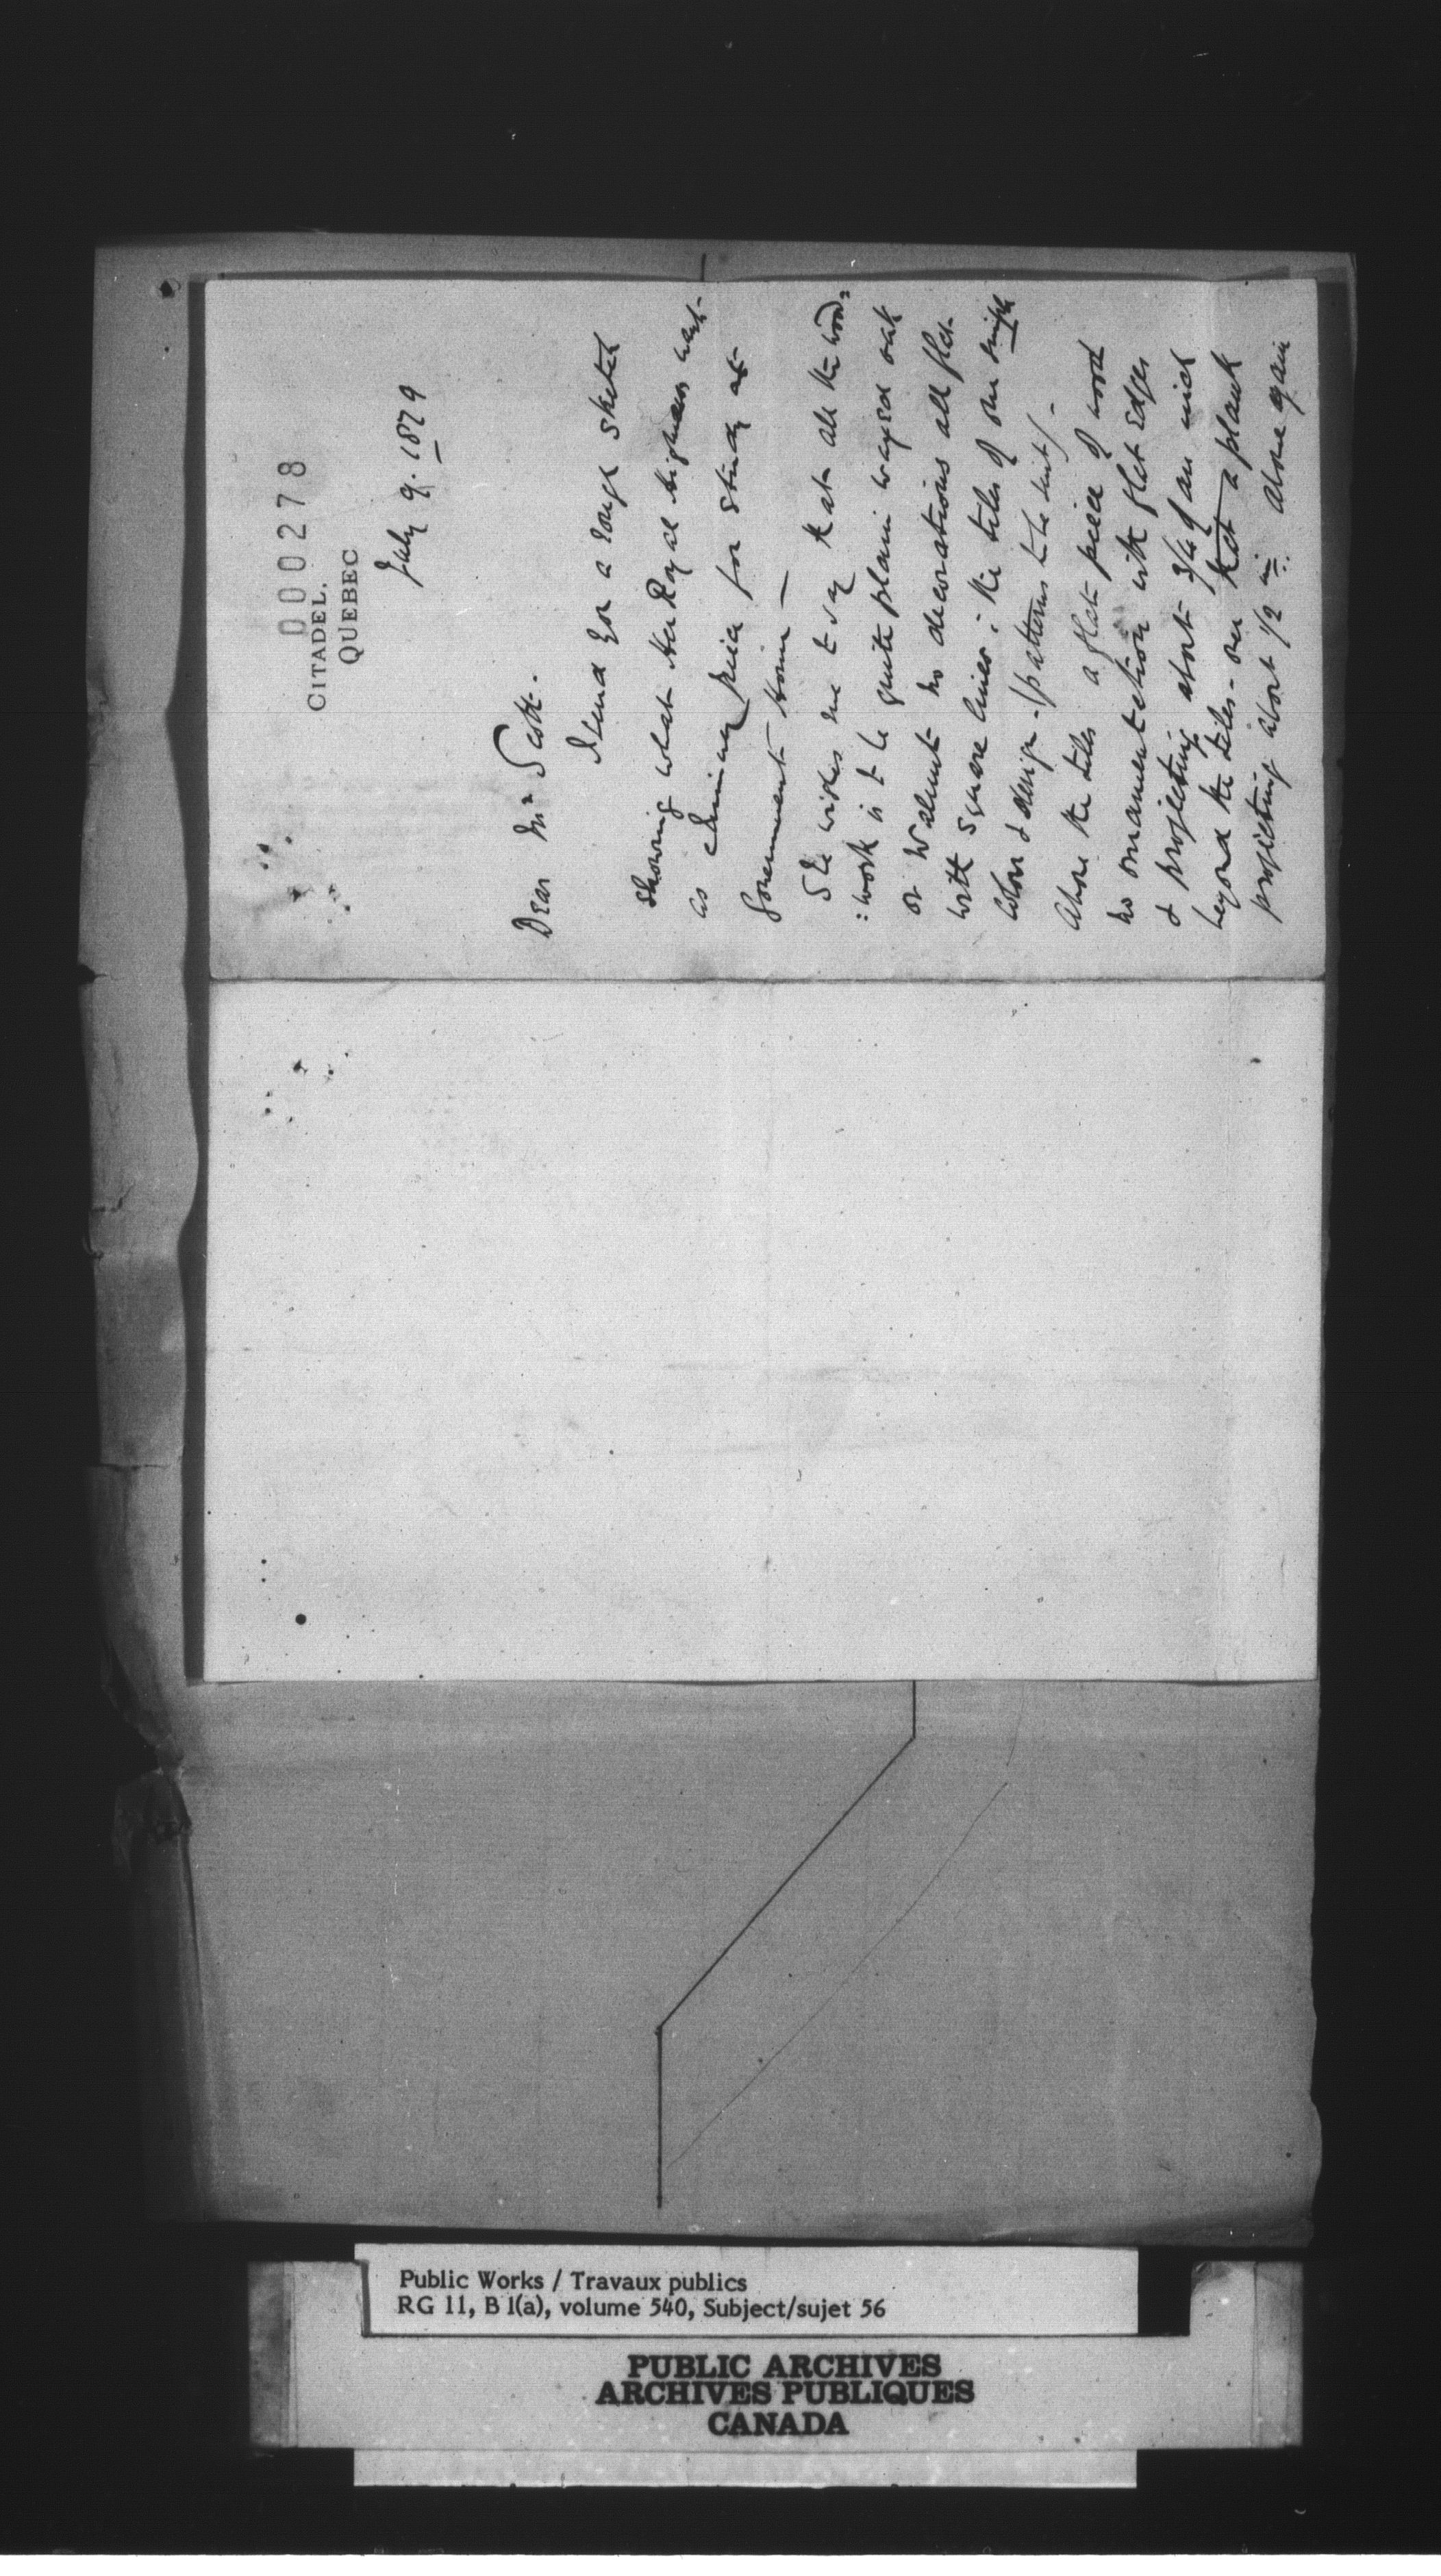 000278
CITADEL.
QUEBEC
July 9. 1879
Dear Mr Scott.
I send you a rough sketch
showing what Her Royal Highness wants
as chimney piece for study at
Government House –
She wishes me to say that all the wood=
:work is to be quite plain waxed oak
or walnut no decorations all flat
with square lines: the tiles of one single
colour & design – (patterns to be sent) –
Above the tiles a flat piece of wood
no ornamentation with flat edges
& projecting about 3/4 of an inch
beyond the tiles – over that a plank
projecting about 1/2 in: above again
Public Works / Travaux publics
RG 11, B 1(a), volume 540, Subject/sujet 56
PUBLIC ARCHIVES
ARCHIVES PUBLIQUES
CANADA